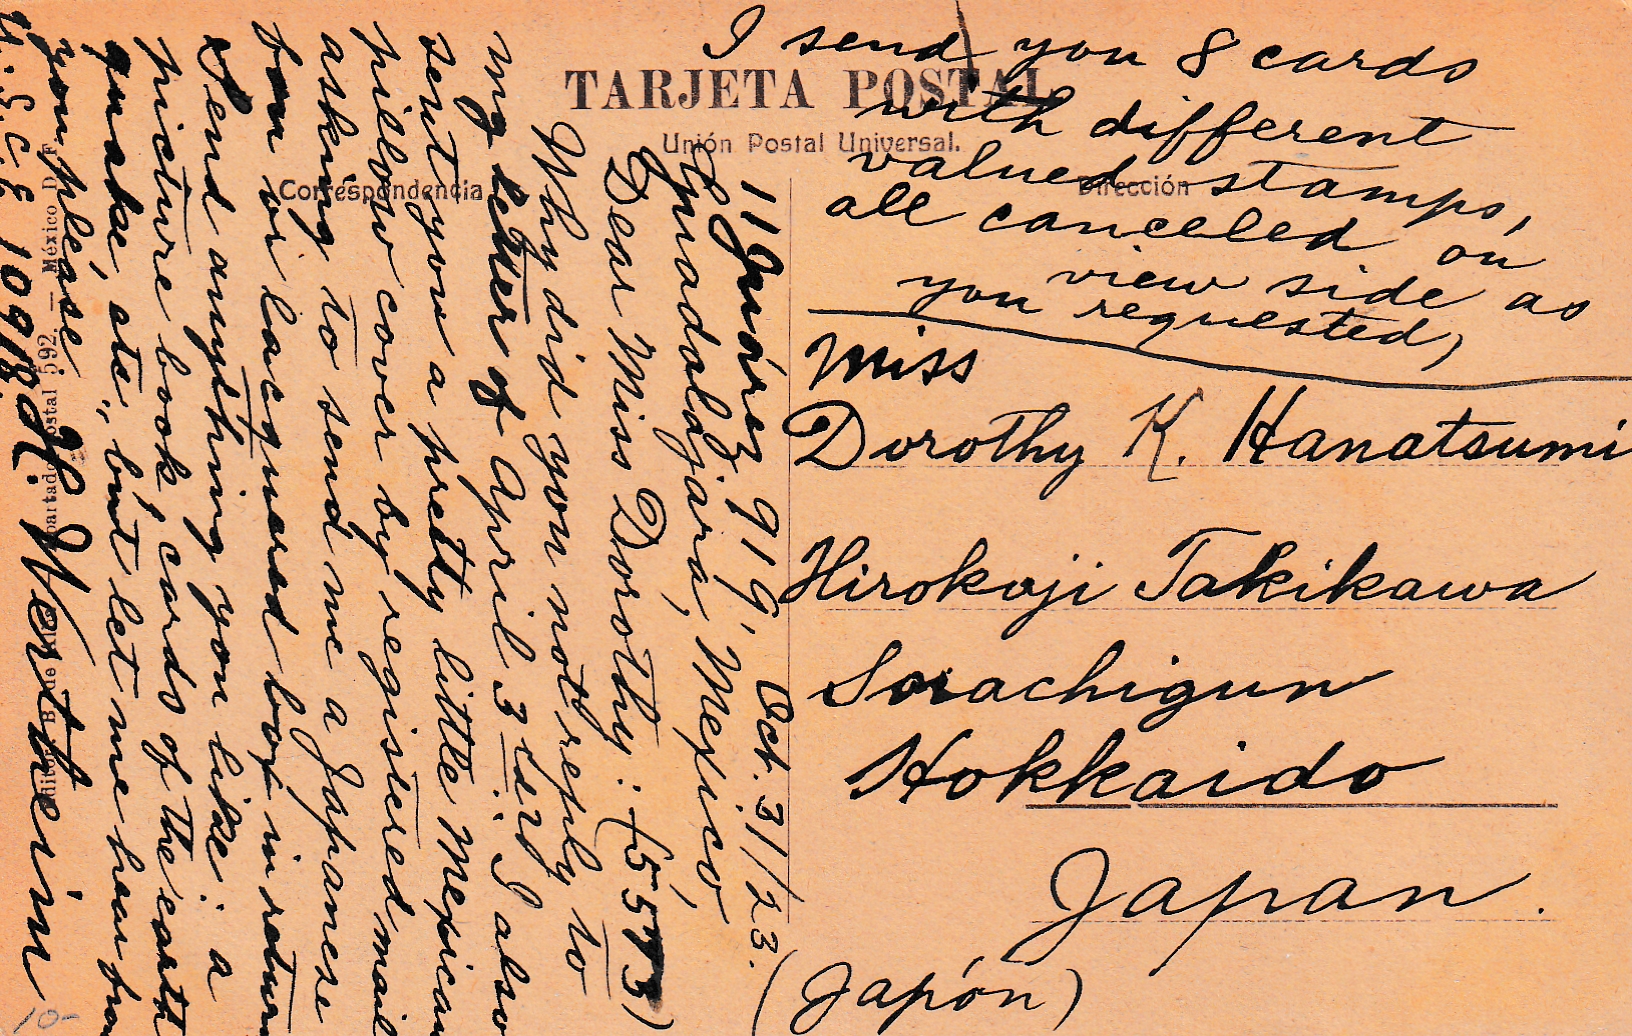 I send you 8 cards
with different
valued stamps,
all canceled on
view side as
you requested,
TARJETA POSTAL
Unión Postal Universal.
Correspondencia
Dirección
Miss
Dorothy K. Hanatsumi
Hirokoji Takikawa
Sorachigun
Hokkaido
Japan.
(Japón)
11 Juárez 919, Oct. 31/23.
Guadalajara, Mexico,
Dear Miss Dorothy: (5573)
Why did you not reply to
my letter of April 3 I also
sent you a pretty little Mexican
pillow cover by registered mail
asking to send me a Japanese
fan or lacquered box in return
Send anything you like: a
picture book, cards of the earth
quake, etc., but let me hear from
you please.
H. Wertheim
10918.
México D. F.
10-